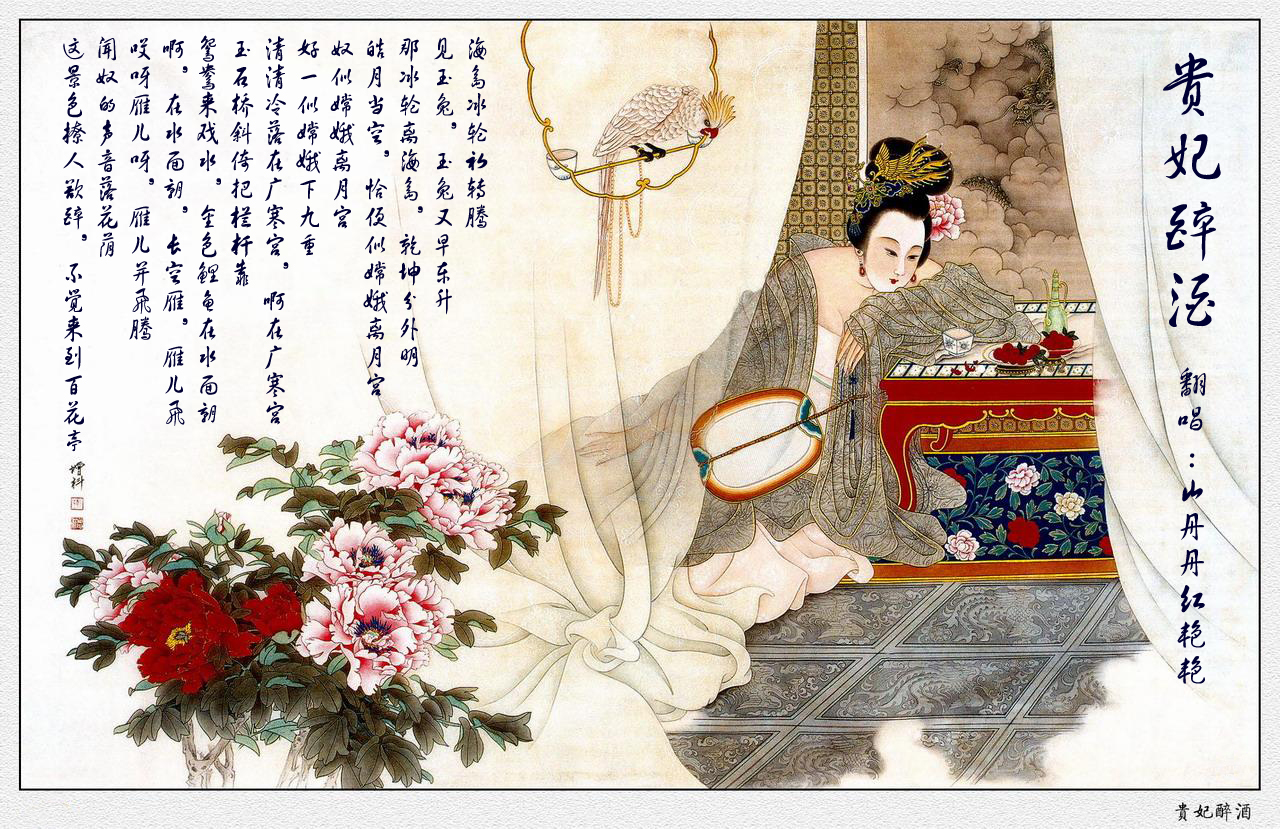 贵妃醉酒
翻唱：山丹丹红艳艳
海岛冰轮初转腾
见玉兔，玉兔又早东升
那冰轮离海岛，乾坤分外明
皓月当空，恰便似嫦娥离月宫
奴似嫦娥离月宫
好一似嫦娥下九重
清清冷落在广寒宫，啊在广寒宫
玉石桥斜倚把栏杆靠
鸳鸯来戏水，金色鲤鱼在水面朝
啊，在水面朝，长空雁，雁儿飞
哎呀雁儿呀，雁儿并飞腾
闻奴的声音落花荫
这景色撩人欲醉，不觉来到百花亭
贵妃醉酒